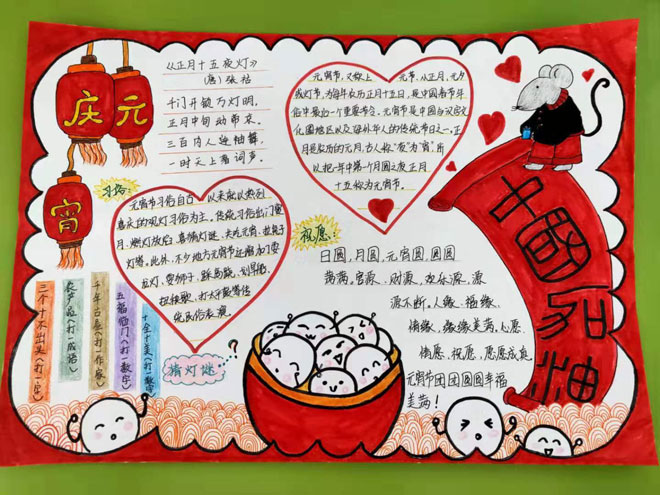 庆元
宵
《正月十五夜灯》
(唐)张祜
千门开锁万灯明,
正月中旬动帝京。
三百内人连袖舞,
一时天上
元宵节,又称上 元节,小正月、元夕
或灯节,为每年农历正月十五日,是中国春节年
俗中最后一个重要节令。元宵节是中国与汉字文
化圈地区以及海外华人的传统节日之一。正
月是农历的元月,古人称“夜”为“宵”,所
以把一年中第一个月圆之夜正月
十五称为元宵节。
习俗:
元宵节习俗自古以来就以热烈
喜庆的观灯习俗为主。传统习俗出门赏
月、燃灯放焰、喜猜灯谜、共吃元宵、拉兔子
灯等。此外,不少地方元宵节还增加了耍
龙灯、耍狮子、踩高跷、划旱船、
扭秧歌、打太平鼓等传
统民俗表演。
祝愿:
日圆,月圆,元宵圆,圆圆
满满,官源,财源,欢乐源,源
源不断。人缘,福缘,
情缘,缘缘美满,心愿,
情愿,祝愿,愿愿成真。
元宵节团团圆圆幸福
美满!
中国加油
三个十木出头(打一字)
(打一成语)
千年古泰(打一作家)
五福临门(打一数字)
十全十美(打一数字)
猜灯谜